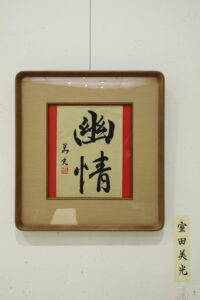 幽情
美光
室田美光